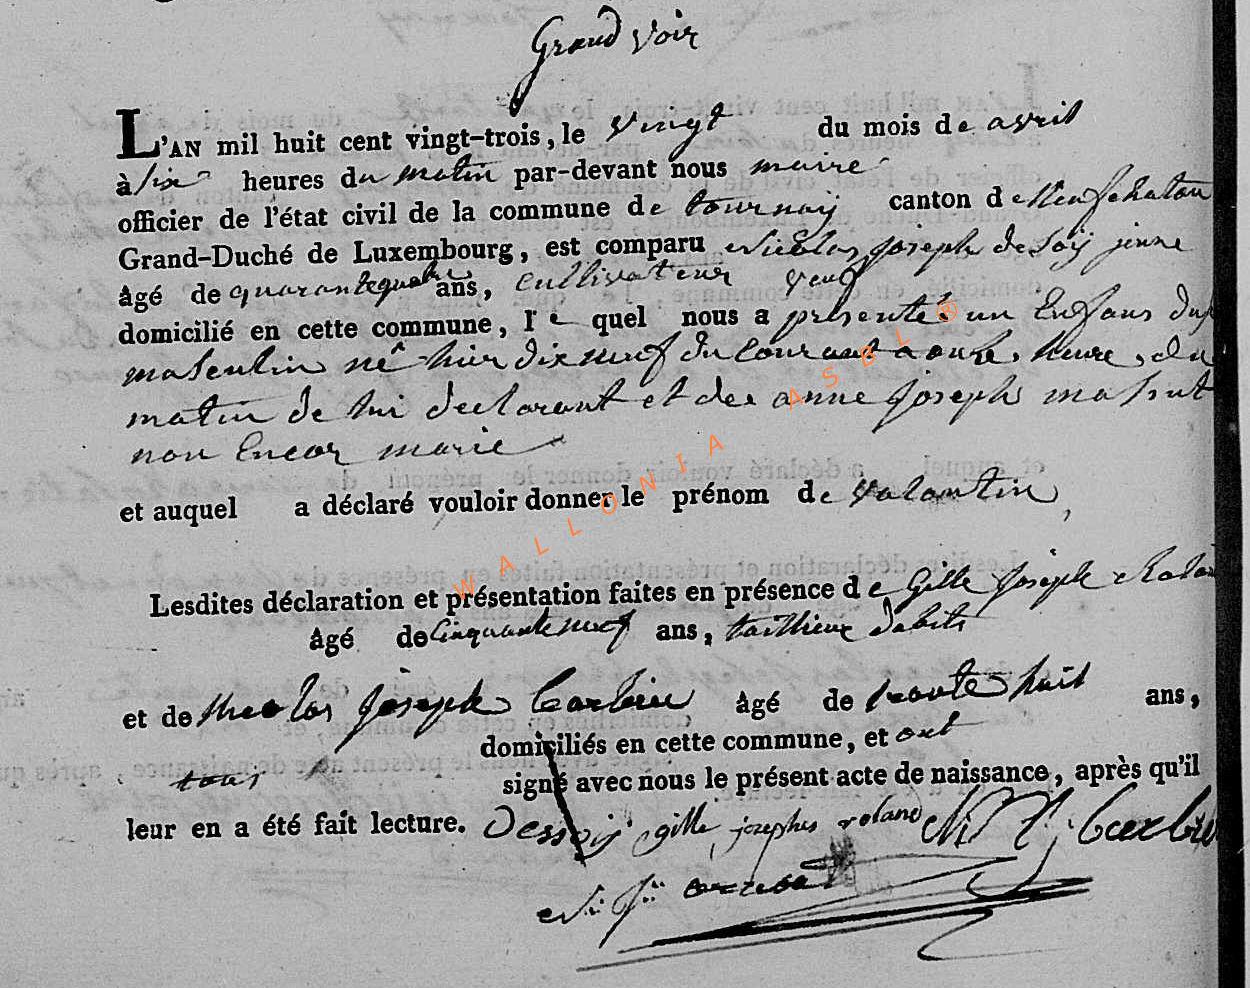 Grand Voir
L'AN mil huit cent vingt-trois, le vingt du mois de avril
à six heures du matin par-devant nous maire
officier de l'état civil de la commune de tournay canton de Neufchatau
Grand-Duché de Luxembourg, est comparu Nicolas Joseph de Soÿ jeune
âgé de quarantequatre ans, cultivateur
domicilié en cette commune, le quel nous a présenté un Enfans du
masculin né hier dix neuf du courant a onze heure du
matin de lui declarant et de anne joseph mahut
non Encor marie
et auquel a déclaré vouloir donner le prénom de valantin
Lesdites déclaration et présentation faites en présence de Gille Joseph Rolan
âgé de Cinquanteneuf ans, taillieur dabits
et de Nicolas joseph Carbiru âgé de trante huit ans,
domiciliés en cette commune, et ont
tous signé avec nous le présent acte de naissance, après qu'il
leur en a été fait lecture. Dessoy gille josephs roland
WALLONIA ASBL ®